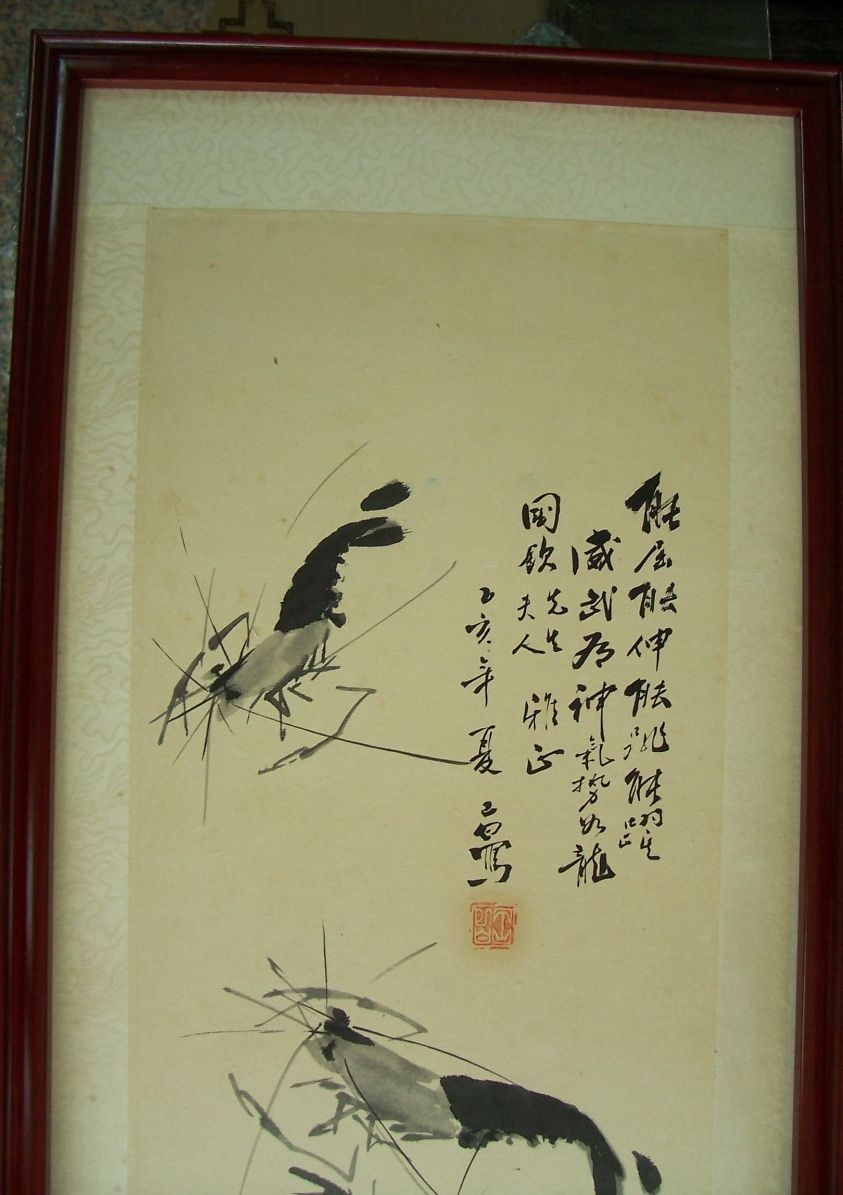 能屈能伸能跳能躍
威武有神氣勢如龍
國欽先生
夫人 雅正
乙亥年夏